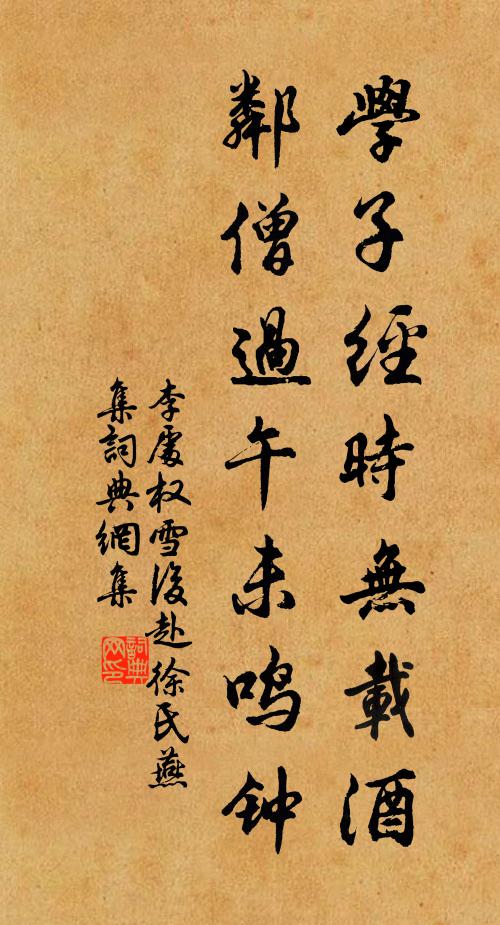 學子經時無載酒
鄰僧過午未鳴钟
李處权雪後赴徐氏燕
集詞典網集
詞典
网印